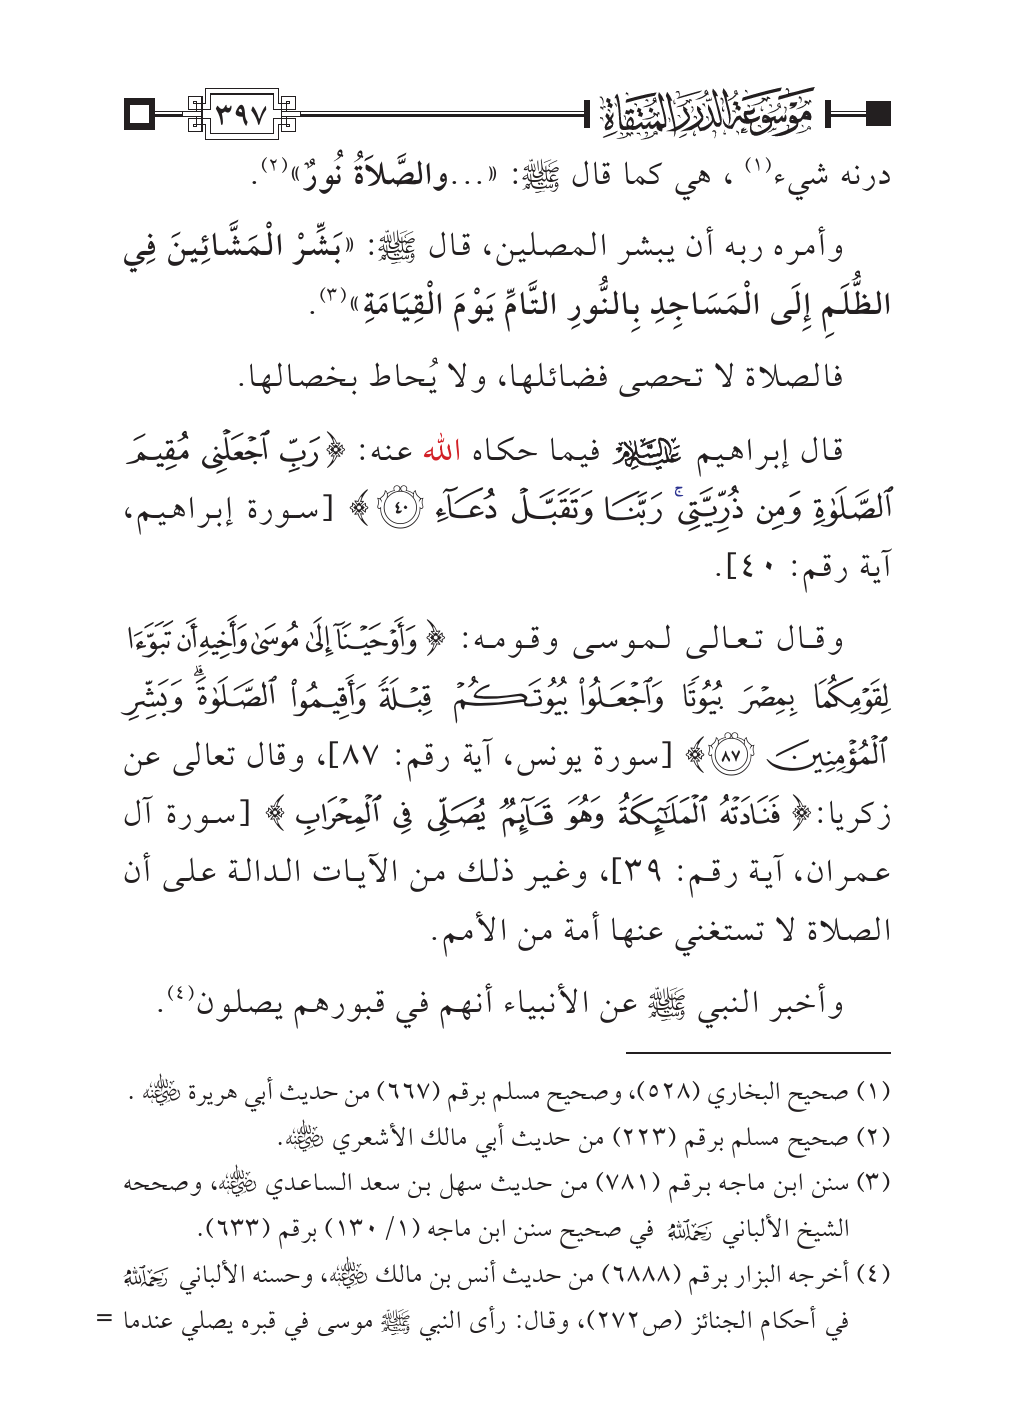 موسوعة الدرر المنتقاة ٣٩٧
درنه شيء(١) ، هي كما قال ﷺ: «...والصَّلاَةُ نُورٌ»(٢).
وأمره ربه أن يبشر المصلين، قال ﷺ: «بَشِّرْ الْمَشَّائِينَ فِي
الظُّلَمِ إِلَى الْمَسَاجِدِ بِالنُّورِ التَّامِّ يَوْمَ الْقِيَامَةِ»(٣).
فالصلاة لا تحصى فضائلها، ولا يُحاط بخصالها.
قال إبراهيم عليه السلام فيما حكاه الله عنه: ﴿رَبِّ ٱجْعَلْنِى مُقِيمَ
ٱلصَّلَوٰةِ وَمِن ذُرِّيَّتِى ۚ رَبَّنَا وَتَقَبَّلْ دُعَآءِ ٤٠﴾ [سورة إبراهيم،
آية رقم: ٤٠].
وقال تعالى لموسى وقومه: ﴿وَأَوْحَيْنَآ إِلَىٰ مُوسَىٰ وَأَخِيهِ أَن تَبَوَّءَا
لِقَوْمِكُمَا بِمِصْرَ بُيُوتًا وَٱجْعَلُوا۟ بُيُوتَكُمْ قِبْلَةً وَأَقِيمُوا۟ ٱلصَّلَوٰةَ ۗ وَبَشِّرِ
ٱلْمُؤْمِنِينَ ٨٧﴾ [سورة يونس، آية رقم: ٨٧]، وقال تعالى عن
زكريا: ﴿فَنَادَتْهُ ٱلْمَلَـٰٓئِكَةُ وَهُوَ قَآئِمٌ يُصَلِّى فِى ٱلْمِحْرَابِ﴾ [سورة آل
عمران، آية رقم: ٣٩]، وغير ذلك من الآيات الدالة على أن
الصلاة لا تستغني عنها أمة من الأمم.
وأخبر النبي ﷺ عن الأنبياء أنهم في قبورهم يصلون(٤).
(١) صحيح البخاري (٥٢٨)، وصحيح مسلم برقم (٦٦٧) من حديث أبي هريرة رضي الله عنه .
(٢) صحيح مسلم برقم (٢٢٣) من حديث أبي مالك الأشعري رضي الله عنه.
(٣) سنن ابن ماجه برقم (٧٨١) من حديث سهل بن سعد الساعدي رضي الله عنه، وصححه
الشيخ الألباني رحمه الله في صحيح سنن ابن ماجه (١/ ١٣٠) برقم (٦٣٣).
(٤) أخرجه البزار برقم (٦٨٨٨) من حديث أنس بن مالك رضي الله عنه، وحسنه الألباني رحمه الله
في أحكام الجنائز (ص٢٧٢)، وقال: رأى النبي ﷺ موسى في قبره يصلي عندما =